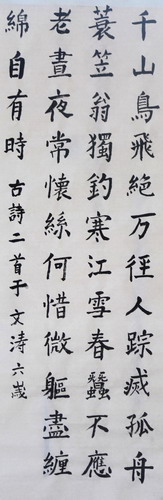 千山鳥飛絕万徑人踪滅孤舟
蓑笠翁獨釣寒江雪春蠶不應
老晝夜常懷絲何惜微軀盡纏
綿自有時 古詩二首于文涛六歲